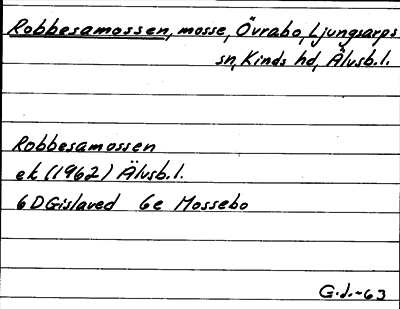 Robbesamossen, mosse, Övrabo, Ljungsarps
sn, Kinds hd, Älvsb.l.
Robbesamossen
ek (1962) Älvsb.l.
6D Gislaved 6e Mossebo
G.J.-63